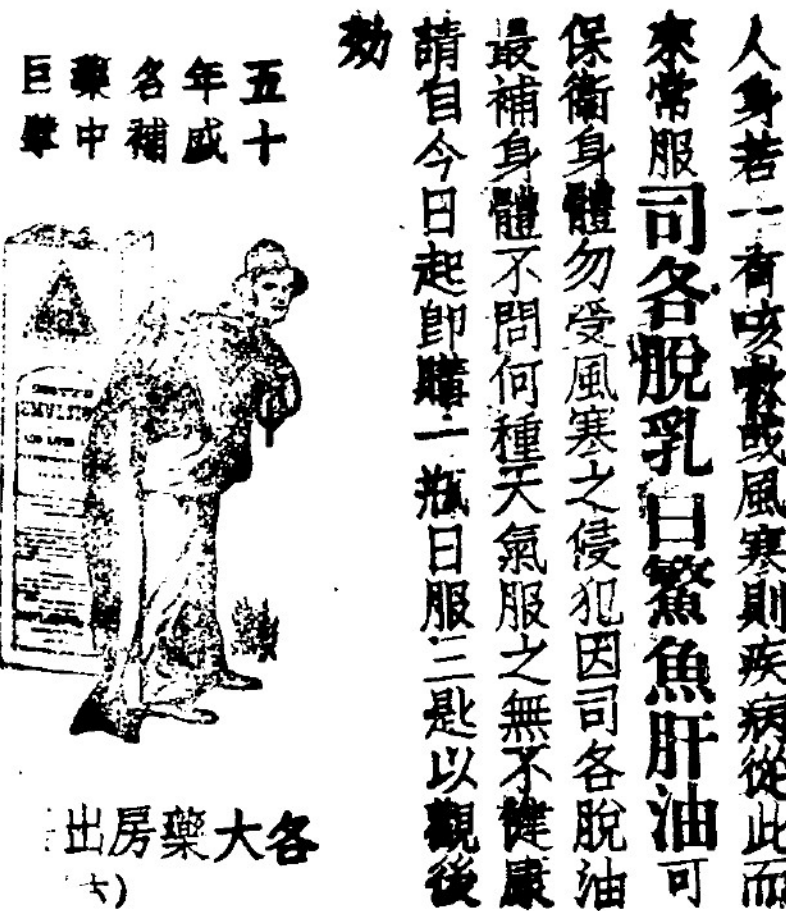 人身若一有咳嗽或風寒則疾病從此而
來常服司各脫乳白鰵魚肝油可
保衛身體勿受風寒之侵犯因司各脫油
最補身體不問何種天氣服之無不健康
請自今日起即購一瓶日服三匙以觀後
効
五十
年咸
名補
藥中
巨擘
各大藥房出